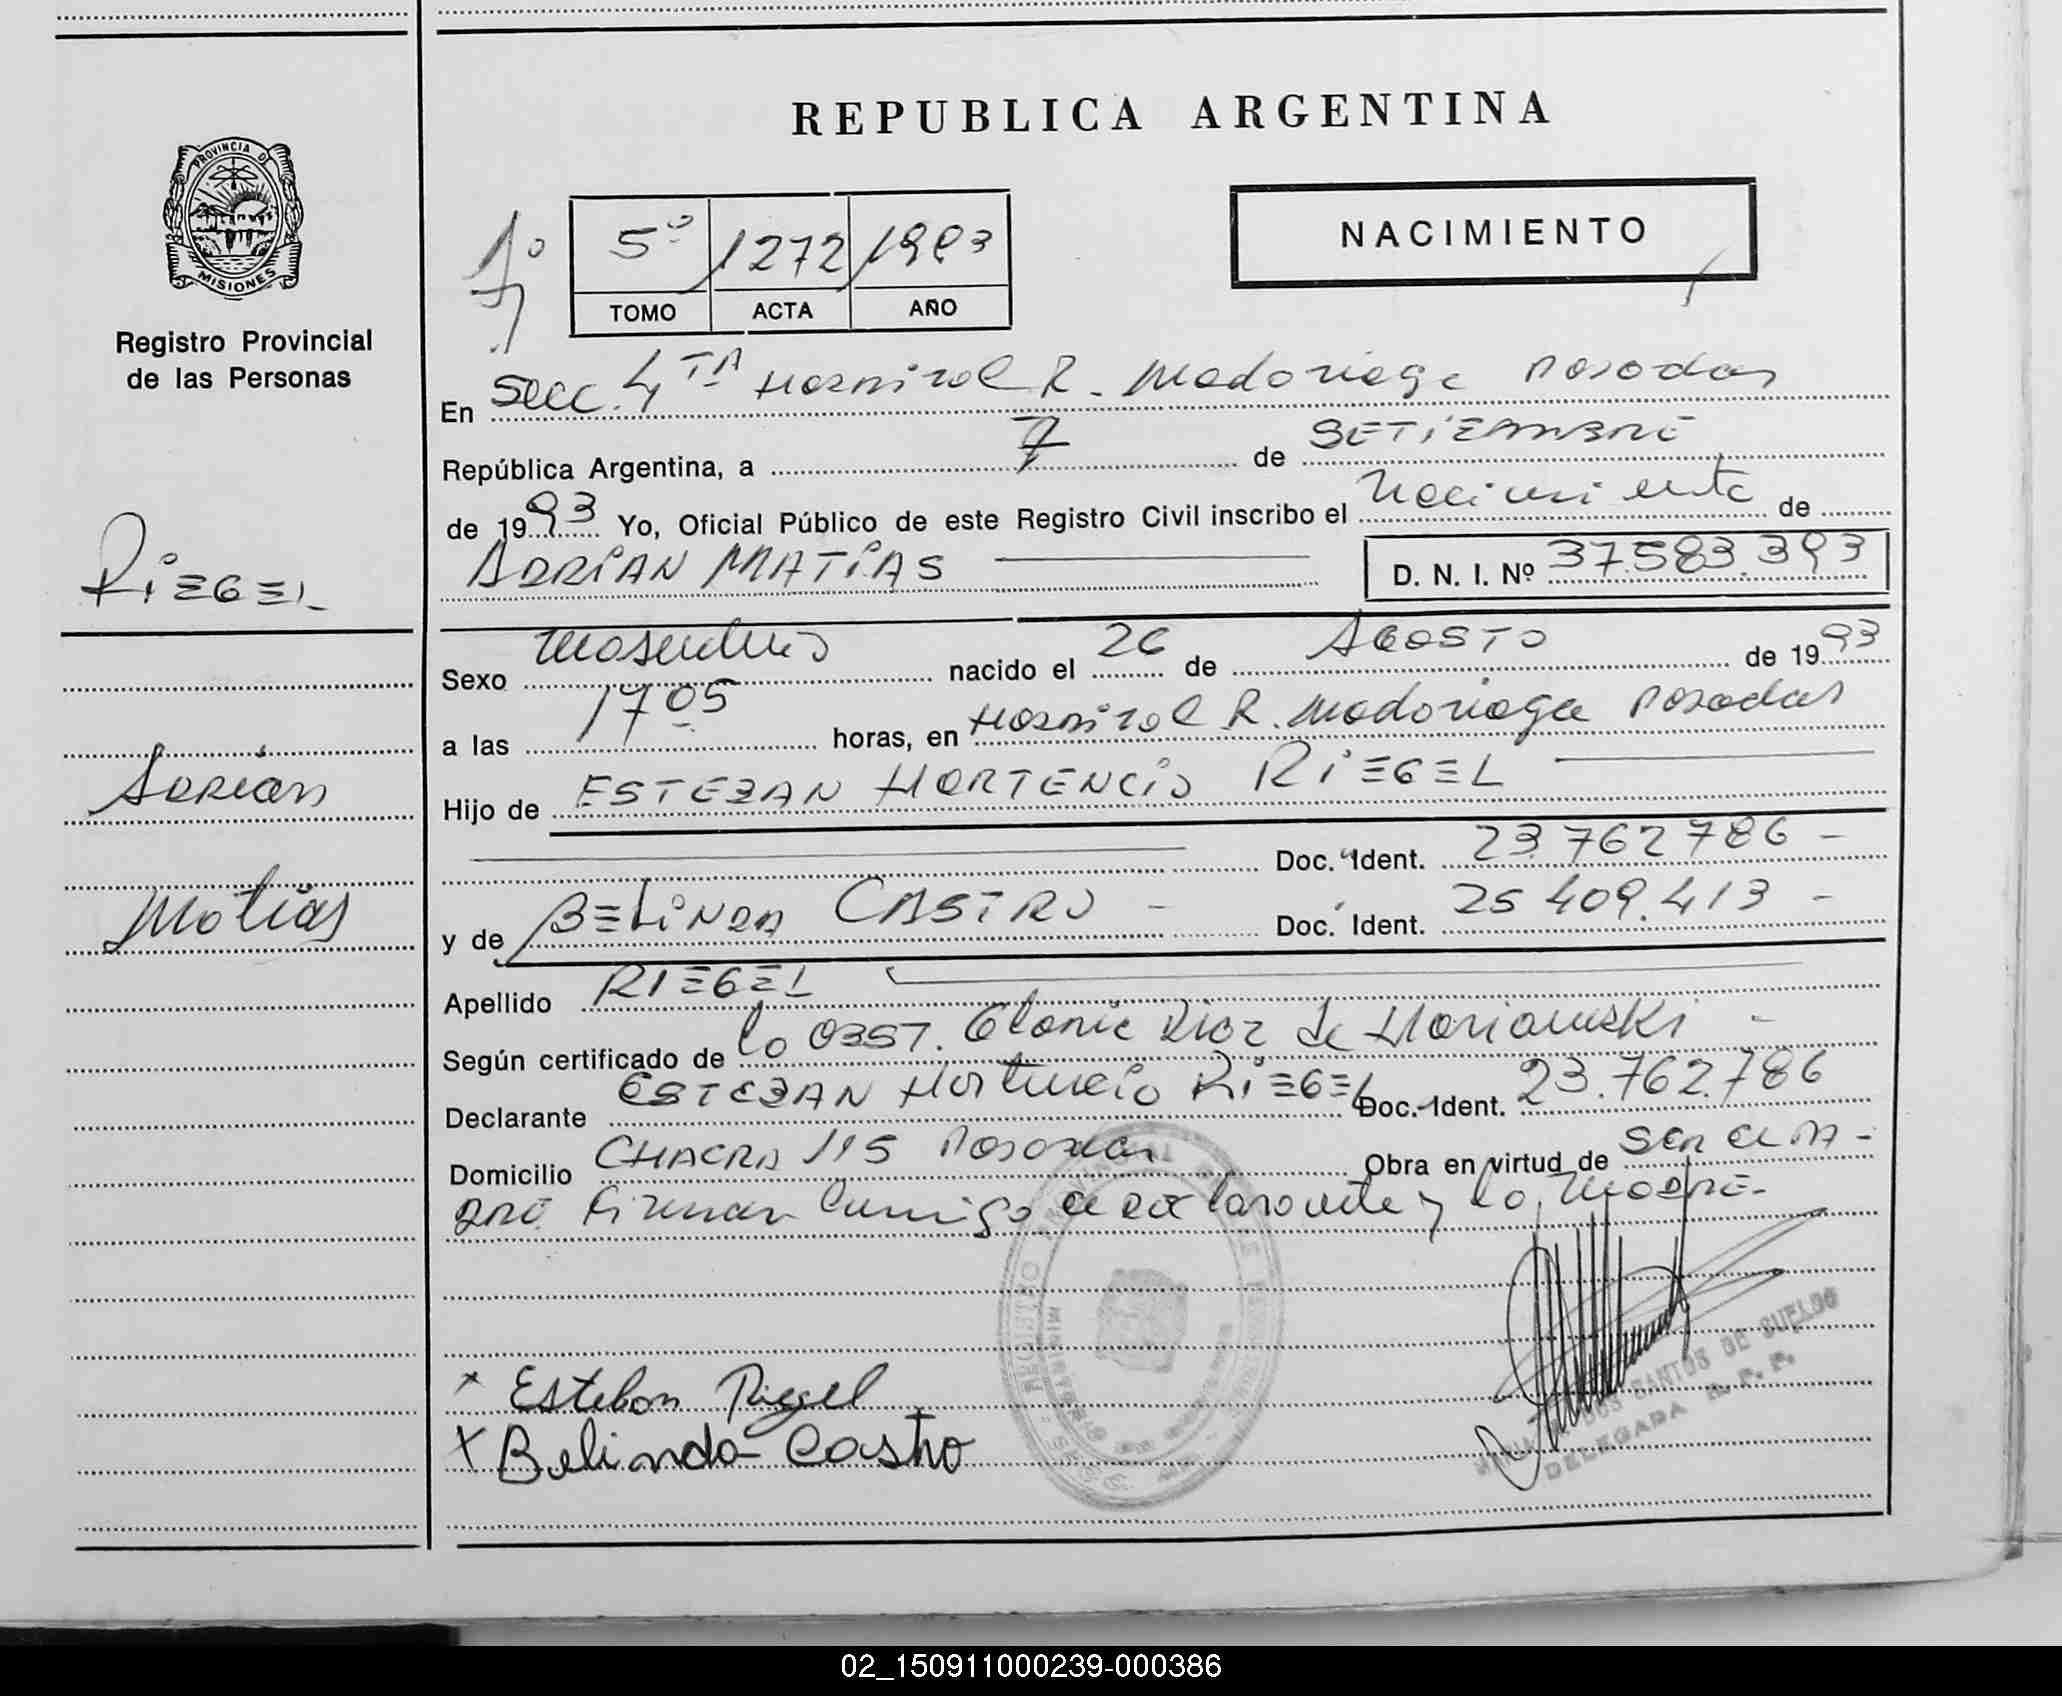 REPUBLICA ARGENTINA
PROVINCIA DE
MISIONES
Registro Provincial
de las Personas
5º 1272 1993
TOMO ACTA AÑO
NACIMIENTO
En Secc. 4TA Hospital R. Madariaga Posadas
República Argentina, a 7 de SETIEMBRE
de 1993 Yo, Oficial Público de este Registro Civil inscribo el Nacimiento de
ADRIAN MATIAS D. N. I. Nº 37.583.393
RIEGEL
Adrián
Matias
Sexo Masculino nacido el 26 de AGOSTO de 1993
a las 17 05 horas, en Hospital R. Madariaga Posadas
Hijo de ESTEBAN HORTENCIO RIEGEL
Doc. Ident. 23.762786 -
y de BELINDA CASTRO - Doc. Ident. 25 409.413 -
Apellido RIEGEL
Según certificado de la OBST. Diaz de -
Declarante ESTEBAN Hortencio RIEGEL Doc. Ident. 23.762.786
Domicilio CHACRA 115 Posadas Obra en virtud de ser el PA-
DRE. Firman conmigo el declarante y la MADRE.-
x Esteban Riegel
x Belinda Castro
DOS SANTOS DE SUELDO
DELEGADA R. P. P.
02_150911000239-000386